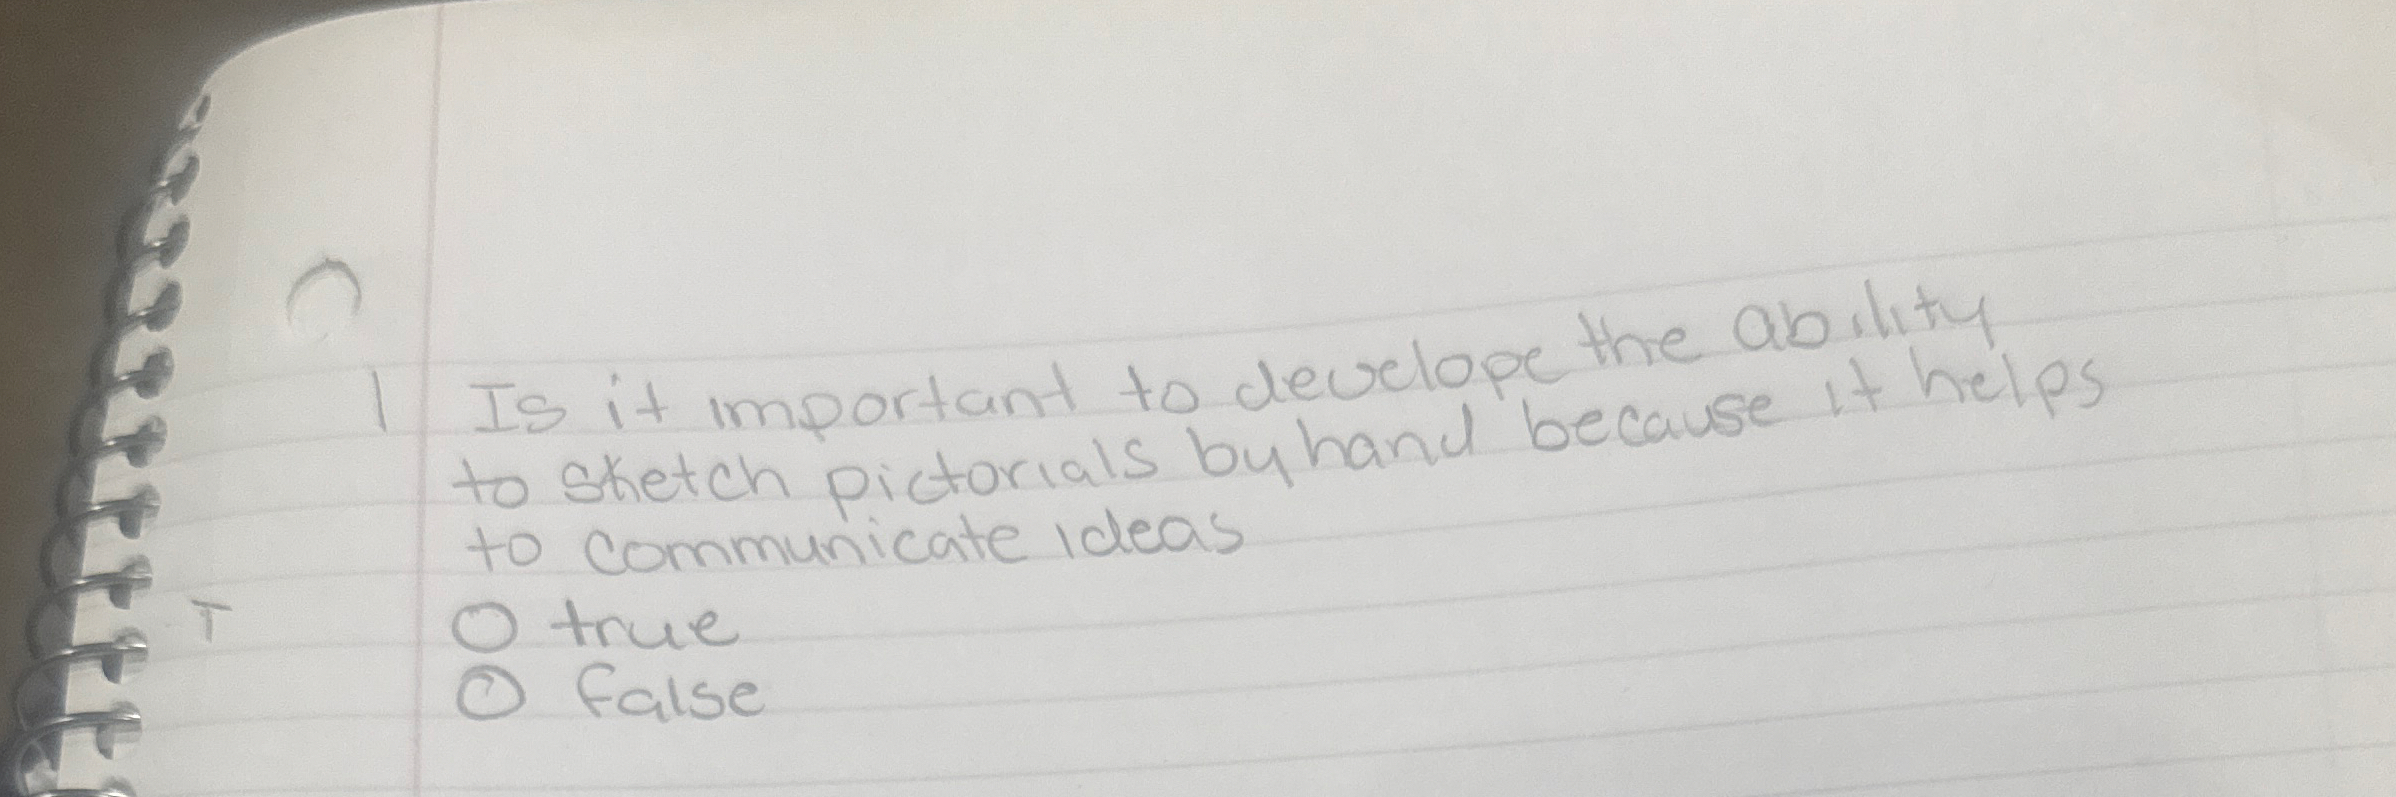 1 Is it important to develope the ability
to sketch pictorials by hand because it helps
to communicate ideas
T O true
O false